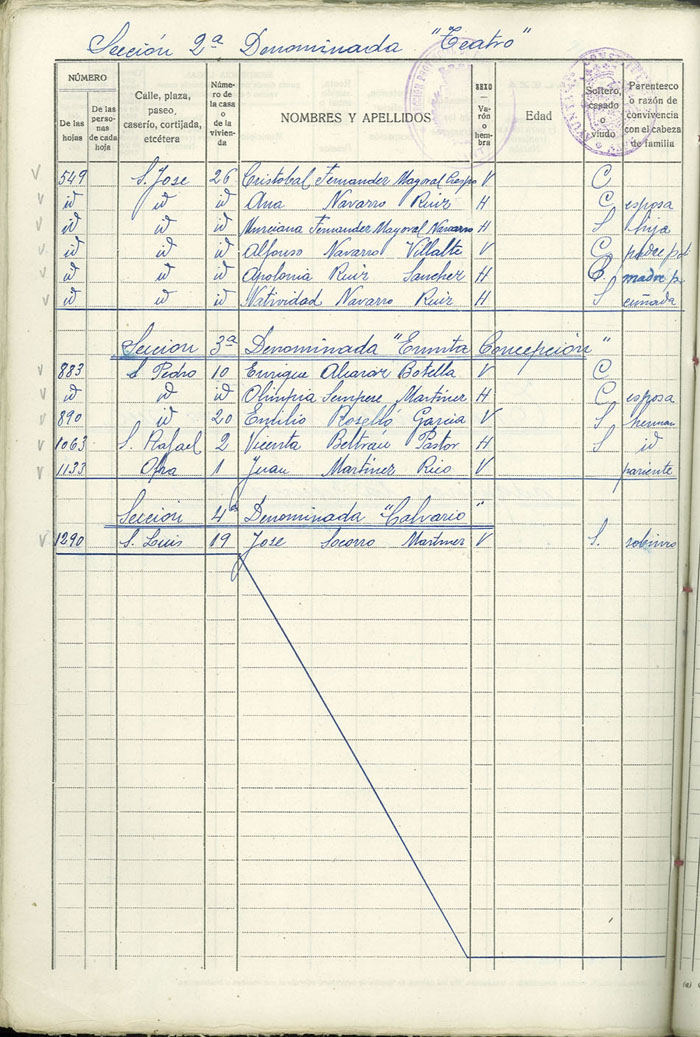 Sección 2ª Denominada "Teatro"
NÚMERO
De las hojas
De las personas de cada hoja
Calle, plaza, paseo, caserío, cortijada, etcétera
Número de la casa o de la vivienda
NOMBRES Y APELLIDOS
SEXO — Varón o hembra
Edad
Soltero, casado o viudo
Parentesco o razón de convivencia con el cabeza de familia
549 S. Jose 26 Cristobal Fernander Mayoral Crespo V C
id id id Ana Navarro Ruiz H C esposa
id id id Murciana Fernander Mayoral Navarro H S hija
id id id Alfonso Navarro Villalte V C padre pol
id id id Apolonia Ruiz Sancher H C madre p
id id id Natividad Navarro Ruiz H S cuñada
Seccion 3ª Denominada "Ermita Concepción"
883 S Pedro 10 Enrique Alvarar Botella V C
id id id Olimpia Sempere Martiner H C esposa
890 id 20 Emilio Roselló Garcia V S herman
1063 S. Rafael 2 Vicenta Beltrau Pastor H S id
1133 Ofra 1 Juan Martiner Rico V pariente
Seccion 4ª Denominada "Calvario"
1290 S. Luis 19 Jose Socorro Martiner V S. sobrino